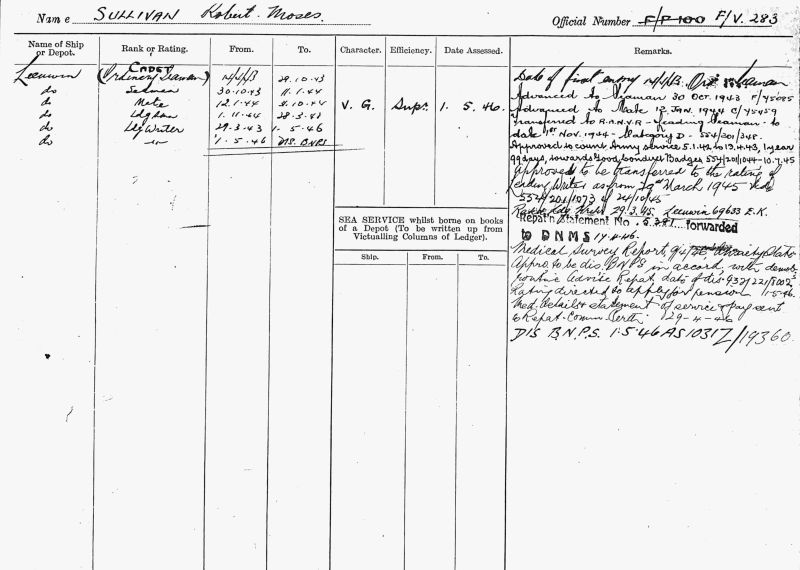 Name SULLIVAN Robert Moses. Official Number F/P 100 F/V. 283
Name of Ship or Depot. Rank or Rating. From. To. Character. Efficiency. Date Assessed. Remarks.
Leeuwin CADET (Ordinary Seaman) 14/4/43 29.10.43
do Seaman 30.10.43 11.1.44
do Mate 12.1.44 31.10.44
do Ldg 1.11.44 28.3.45
do Ldg Writer 29.3.45 1.5.46
do 1.5.46 DIS. BNPS
V.G. Supr. 1. 5. 46.
Date of first entry 14/4/43. Ord Seaman
Advanced to Seaman 30 OCT. 1943 F/45085
Advanced to Mate 12 JAN. 1944 C/45459
Transferred to R.A.N.V.R - Leading Seaman - to
date 1st NOV. 1944 - Category D - 554/201/348.
Approved to count Army service 5.1.42 to 13.4.43, 1 year
99 days, towards Good Conduct Badges 554/201/1044 - 10.7.45
Approved to be transferred to the rating of
Leading Writer as from 29th March 1945
554/201/1073 of 24/10/45
29.3.45. Leeuwin 69633 E.K.
Repat'n Statement No. 5281 forwarded
to DNMS 17.4.46.
Medical Survey Report, 9/4/46 Anxiety State
Appro. to be dis. BNPS in accord. with demob.
routine Advise Repat. date of dis. 937/221/8002
Rating directed to apply for pension 1.5.46.
Med. details & statement of service & pay sent
to Repat. Comm. Perth. 29-4-46
DIS B.N.P.S. 1.5.46 AS1031Z/19360.
SEA SERVICE whilst borne on books
of a Depot (To be written up from
Victualling Columns of Ledger).
Ship. From. To.